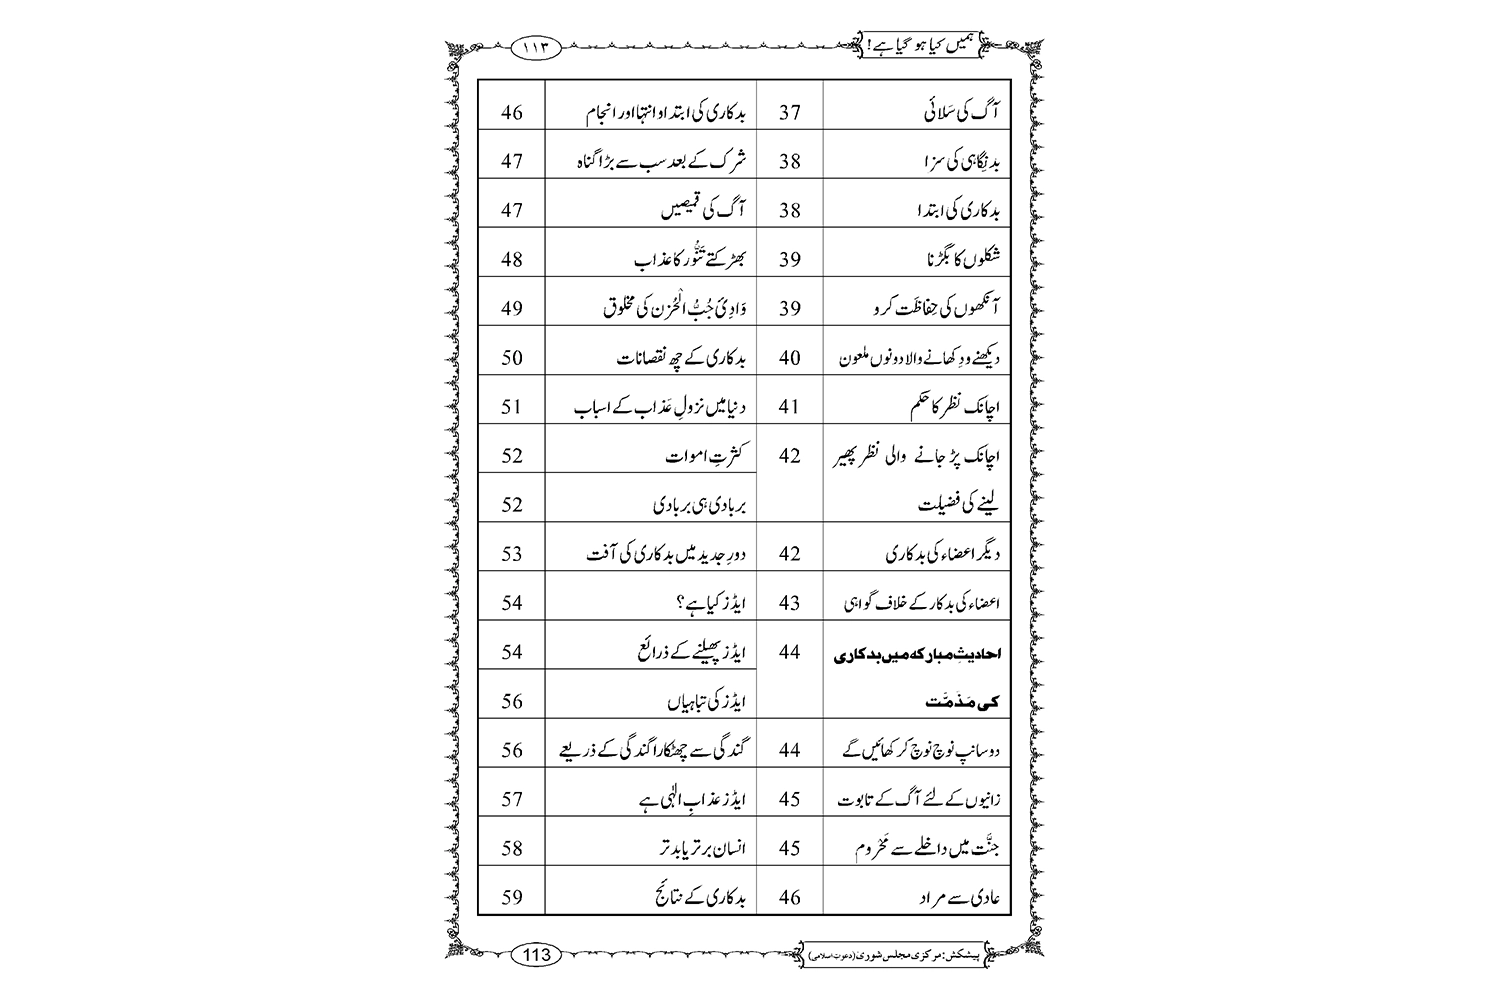 ہمیں کیا ہو گیا ہے!
۱۱۳
آگ کی سَلائی 37 بدکاری کی ابتدا و انتہا اور انجام 46
بدنِگاہی کی سزا 38 شرک کے بعد سب سے بڑا گناہ 47
بدکاری کی ابتدا 38 آگ کی قمیصیں 47
شکلوں کا بگڑنا 39 بھڑکتے تَنُّور کا عذاب 48
آنکھوں کی حِفاظَت کرو 39 وَادِیٔ جُبُّ الْحُزن کی مخلوق 49
دیکھنے و دِکھانے والا دونوں ملعون 40 بدکاری کے چھ نقصانات 50
اچانک نظر کا حُکم 41 دنیا میں نزولِ عَذاب کے اسباب 51
اچانک پڑ جانے والی نظر پھیر 42 کثرتِ اموات 52
لینے کی فضیلت بربادی ہی بربادی 52
دیگر اعضاء کی بدکاری 42 دورِ جدید میں بدکاری کی آفت 53
اعضاء کی بدکار کے خلاف گواہی 43 ایڈز کیا ہے؟ 54
احادیثِ مبارکہ میں بدکاری 44 ایڈز پھیلنے کے ذرائع 54
کی مَذَمَّت ایڈز کی تباہیاں 56
دو سانپ نوچ نوچ کر کھائیں گے 44 گندگی سے چھٹکارا گندگی کے ذریعے 56
زانیوں کے لئے آگ کے تابوت 45 ایڈز عذابِ الٰہی ہے 57
جنَّت میں داخلے سے مَحْروم 45 انسان برتر یا بدتر 58
عادی سے مراد 46 بدکاری کے نتائج 59
پیشکش: مرکزی مجلس شوریٰ (دعوتِ اسلامی)
113